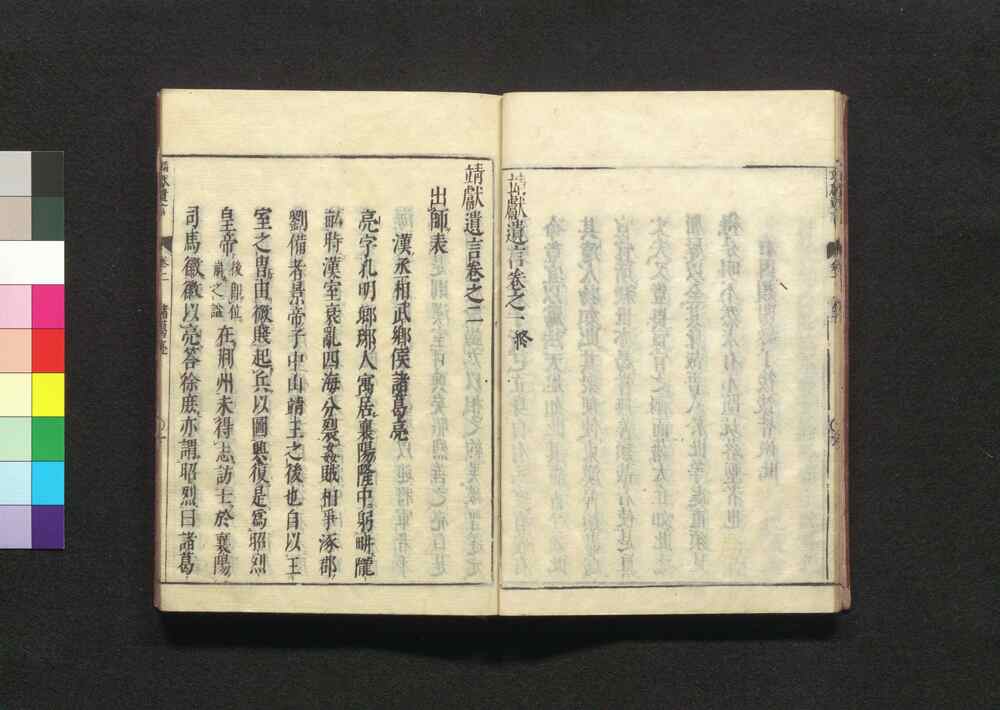 靖獻遺言卷之一 終
靖獻遺言卷之二
出師表
漢丞相武鄉侯諸葛亮
亮字孔明鄉瑯人寓居襄陽隆中躬畊隴
畝時漢室衰亂四海分裂姦賊相爭涿郡
劉備者景帝子中山靖王之後也自以王
室之胄由微賤起兵以圖興復是爲昭烈
皇帝後卽位崩之諡在荊州未得志訪士於襄陽
司馬徽徽以亮答徐庶亦謂昭烈曰諸葛
卷二 諸葛亮